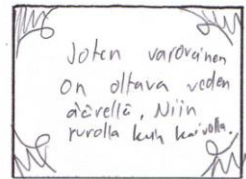 Joten varovainen
on oltava veden
äärellä, Niin
purolla kuin kaivolla.